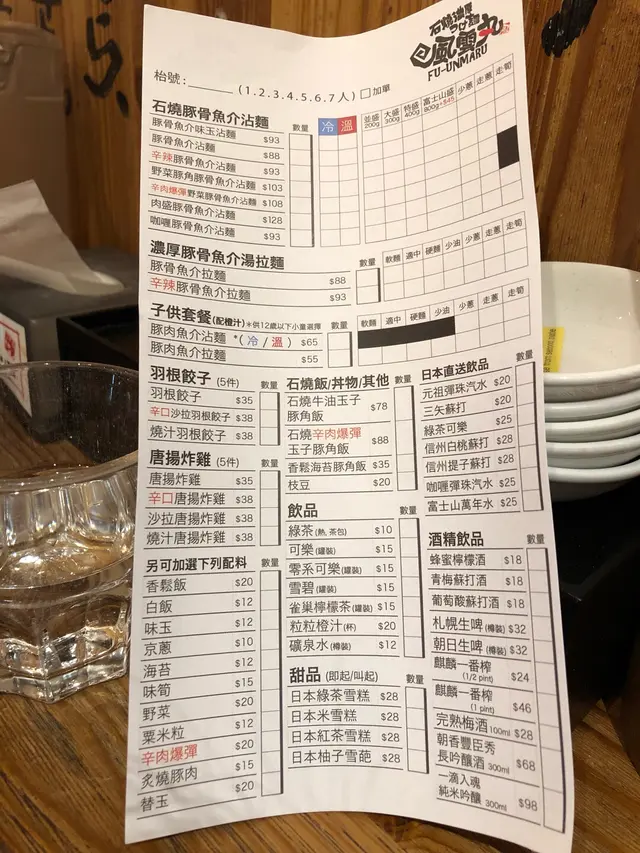 石燒濃厚
つけ麵
風雲丸
FU-UNMARU
枱號:_____ (1.2.3.4.5.6.7人) □加單
石燒豚骨魚介沾麵 數量 冷 溫 並盛200g 大盛300g 特盛400g 富士山盛800g+$45 少蔥 走蔥 走筍
豚骨魚介味玉沾麵 $93
豚骨魚介沾麵 $88
辛辣豚骨魚介沾麵 $93
野菜豚角豚骨魚介沾麵 $103
辛肉爆彈野菜豚骨魚介沾麵 $108
肉盛豚骨魚介沾麵 $128
咖喱豚骨魚介沾麵 $93
濃厚豚骨魚介湯拉麵 數量 軟麵 適中 硬麵 少油 少蔥 走蔥 走筍
豚骨魚介拉麵 $88
辛辣豚骨魚介拉麵 $93
子供套餐(配橙汁)*供12歲以下小童選擇 數量 軟麵 適中 硬麵 少油 少蔥 走蔥 走筍
豚肉魚介沾麵 *(冷/溫) $65
豚肉魚介拉麵 $55
羽根餃子 (5件) 數量
羽根餃子 $35
辛口沙拉羽根餃子 $38
燒汁羽根餃子 $38
唐揚炸雞 (5件) 數量
唐揚炸雞 $35
辛口唐揚炸雞 $38
沙拉唐揚炸雞 $38
燒汁唐揚炸雞 $38
另可加選下列配料 數量
香鬆飯 $20
白飯 $12
味玉 $12
京蔥 $10
海苔 $12
味筍 $15
野菜 $20
粟米粒 $12
辛肉爆彈 $20
炙燒豚肉 $15
替玉 $20
石燒飯/丼物/其他 數量
石燒牛油玉子
豚角飯 $78
石燒辛肉爆彈
玉子豚角飯 $88
香鬆海苔豚角飯 $35
枝豆 $20
飲品 數量
綠茶(熱, 茶包) $10
可樂(罐裝) $15
零系可樂(罐裝) $15
雪碧(罐裝) $15
雀巢檸檬茶(罐裝) $15
粒粒橙汁(杯) $20
礦泉水(樽裝) $12
甜品 (即起/叫起) 數量
日本綠茶雪糕 $28
日本米雪糕 $28
日本紅茶雪糕 $28
日本柚子雪葩 $28
日本直送飲品 數量
元祖彈珠汽水 $20
三矢蘇打 $20
綠茶可樂 $25
信州白桃蘇打 $28
信州提子蘇打 $28
咖喱彈珠汽水 $25
富士山萬年水 $25
酒精飲品 數量
蜂蜜檸檬酒 $18
青梅蘇打酒 $18
葡萄酸蘇打酒 $18
札幌生啤(樽裝) $32
朝日生啤(樽裝) $32
麒麟一番榨
(1/2 pint) $24
麒麟一番榨
(1 pint) $46
完熟梅酒100ml $28
朝香豐臣秀
長吟釀酒 300ml $68
一滴入魂
純米吟釀 300ml $98